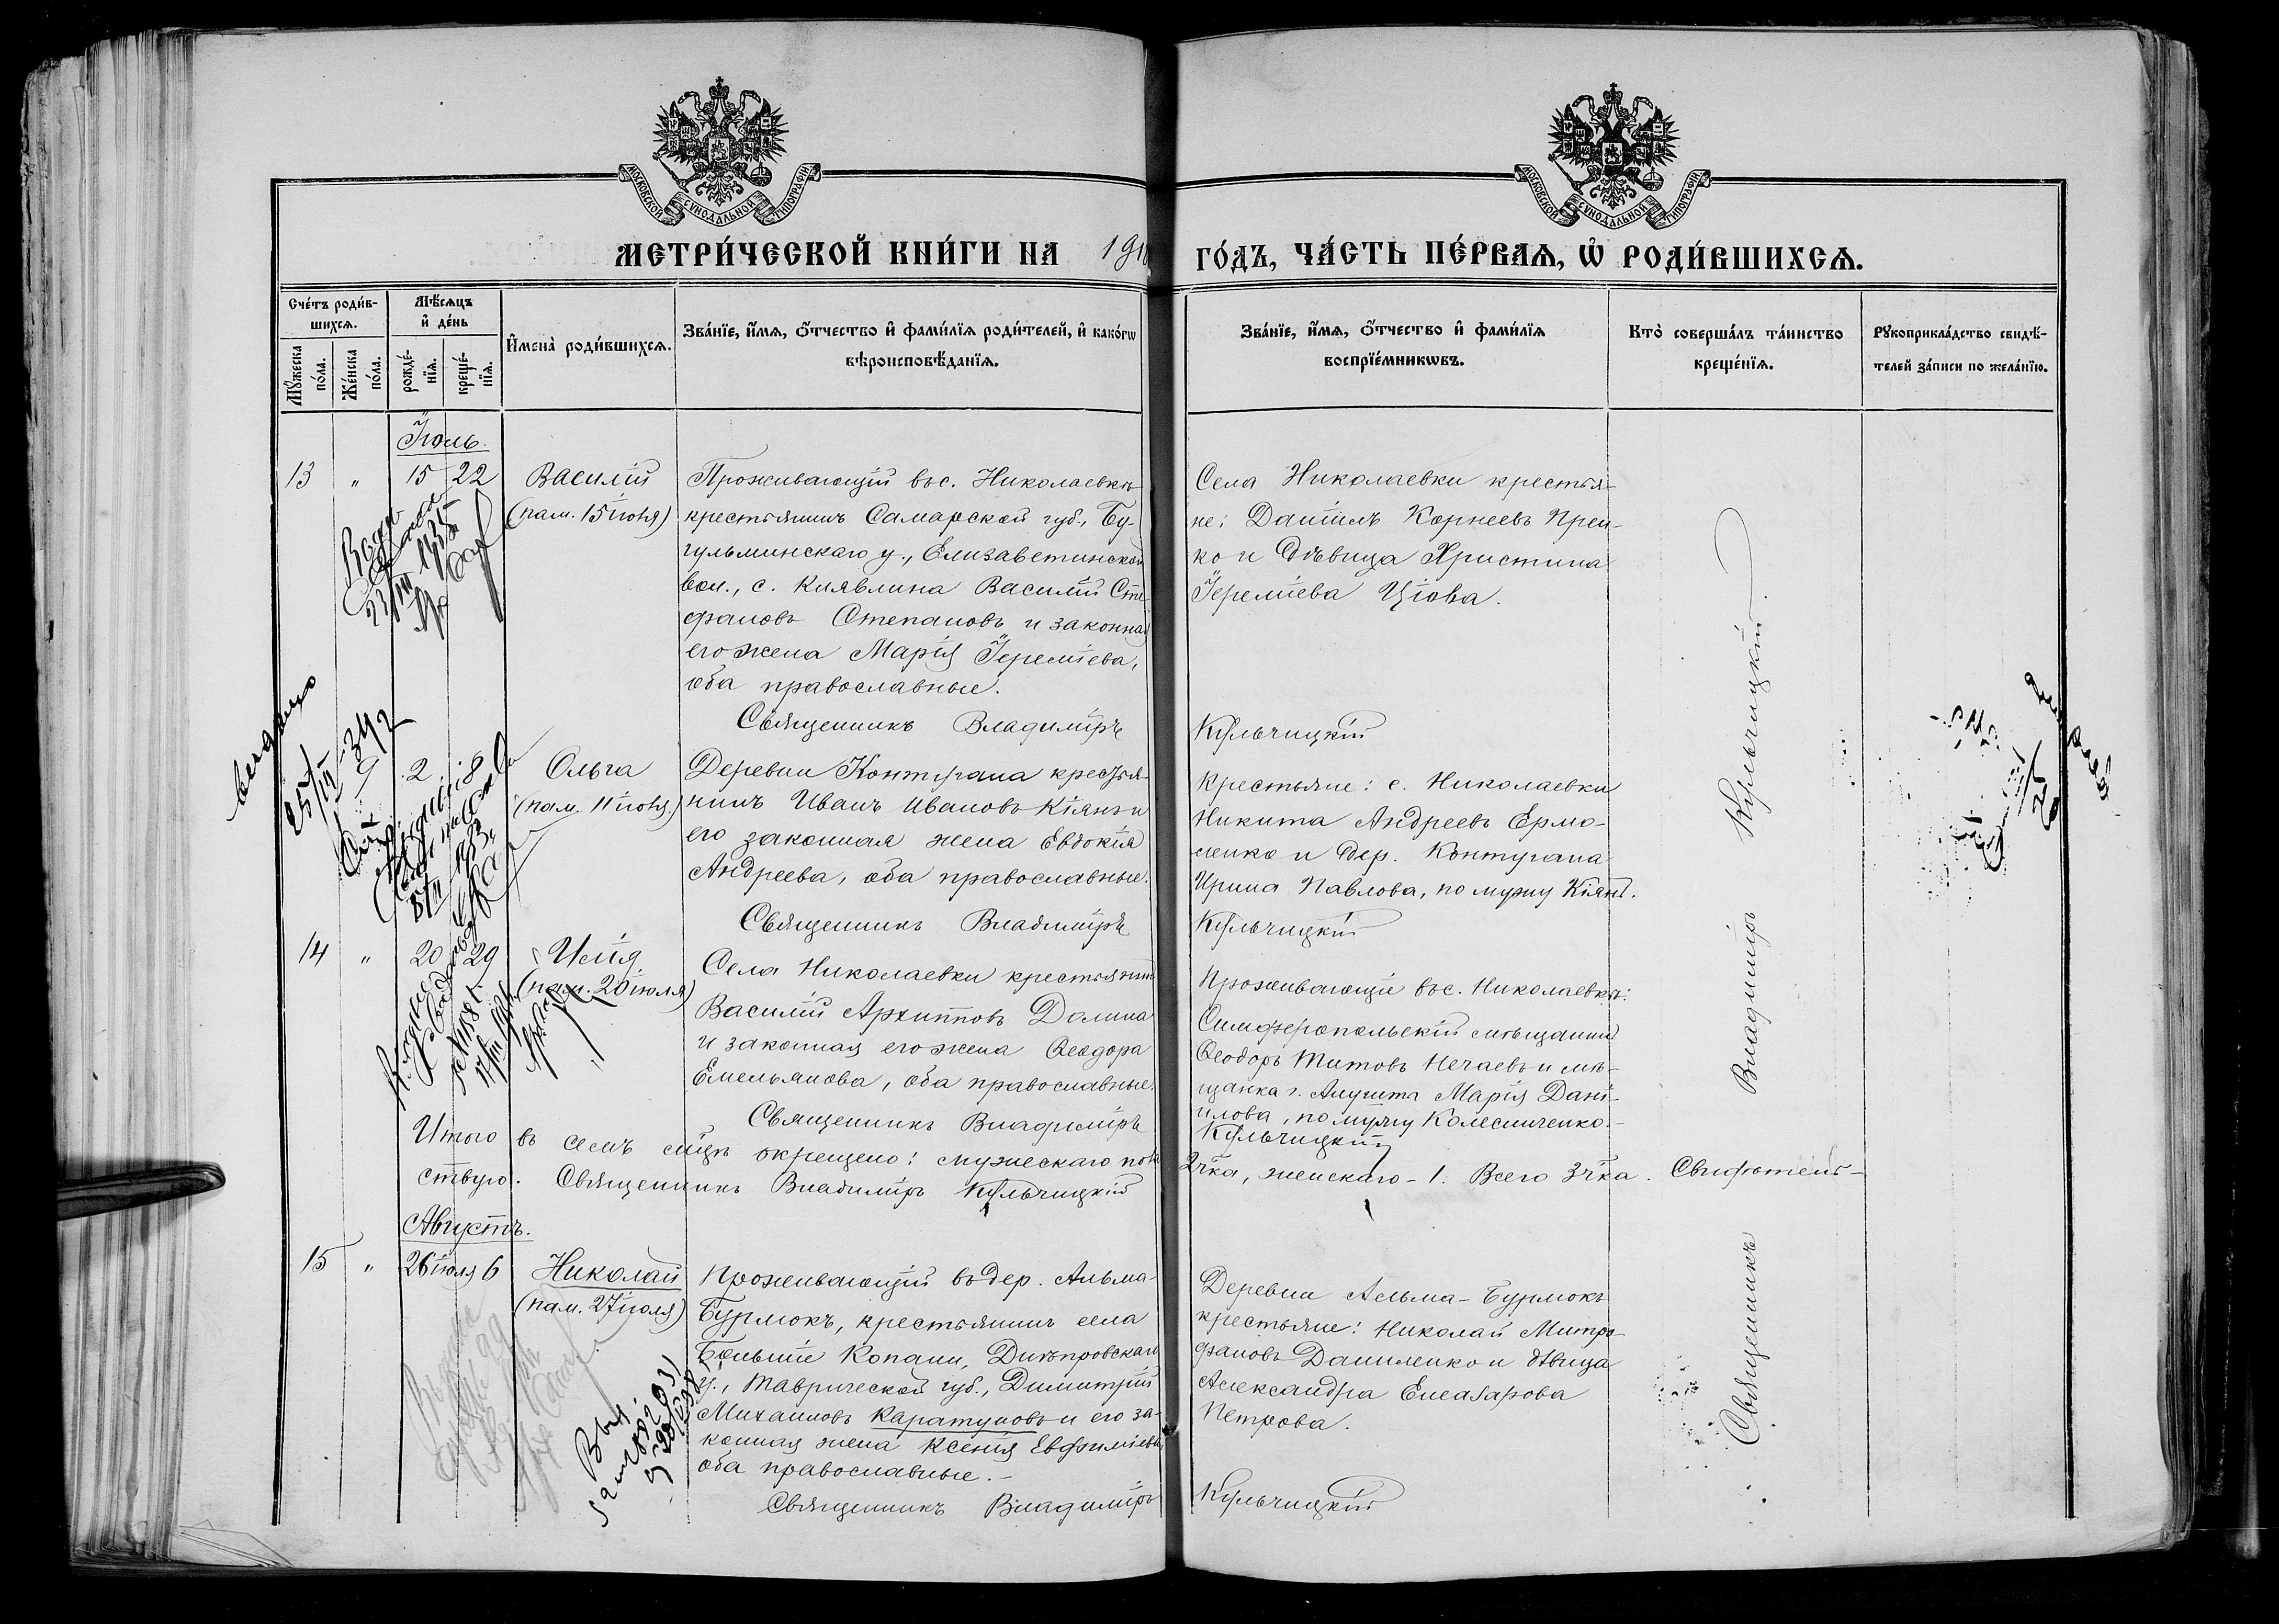 МОСКОВСКОЙ СѴНОДАЛЬНОЙ ТИПОГРАФІИ
МОСКОВСКОЙ СѴНОДАЛЬНОЙ ТИПОГРАФІИ
МЕТРИ́ЧЕСКОЙ КНИ́ГИ НА 1910 ГО́ДЪ, ЧА́СТЬ ПЕ́РВАѦ, Ѡ҆ РОДИ́ВШИХСѦ.
Сче́тъ роди́в-
шихсѧ.
Мꙋ́жеска по́ла.
Же́нска по́ла.
Мѣ́сѧцъ
и҆ де́нь
рожде́-
нїѧ.
креще́-
нїѧ.
И҆мена̀ роди́вшихсѧ.
Зва́нїе, и҆́мѧ, ѻ҆́тчество и҆ фами́лїѧ роди́телей, и҆ како́гѡ
вѣроисповѣ́данїѧ.
Зва́нїе, и҆́мѧ, ѻ҆́тчество и҆ фами́лїѧ
воспрїе́мникѡвъ.
Кто̀ соверша́лъ та́инство
креще́нїѧ.
Рꙋкоприкла́дство свидѣ́-
телей за́писи по жела́нїю.
Іюль.
13 " 15 22 Василій
(пам. 15 іюня)
Проживающій въ с. Николаевкѣ
крестьянинъ Самарской губ., Бу-
гульминскаго у., Елизаветинской
вол., с. Клявлина Василій Сте-
фановъ Степановъ и законная
его жена Марія Іереміева,
оба православные.
Священникъ Владиміръ
Села Николаевки крестья-
не: Даніилъ Корнеевъ
и дѣвица Христина
Іереміева Ціова.
Кульчицкій
9 2 8 Ольга
(пам. 11 іюля)
Деревни Контугана крестья-
нинъ Иванъ Ивановъ Кіянъ и
его законная жена Евдокія
Андреева, оба православные.
Священникъ Владиміръ
Крестьяне: с. Николаевки
Никита Андреевъ Ермо-
ленко и дер. Контугана
Ирина Павлова, по мужу Кіянъ.
Кульчицкій
14 " 20 29 Илія
(пам. 20 іюля)
Села Николаевки крестьянинъ
Василій Архипповъ Долина
и законная его жена Ѳеодора
Емельянова, оба православные.
Священникъ Владиміръ
Проживающіе въ с. Николаевкѣ:
Симферопольскій мѣщанинъ
Ѳеодоръ Титовъ Нечаевъ и мѣ-
щанка г. Алушта Марія Дані-
илова, по мужу Колесниченко.
Кульчицкій
Итого въ семъ мѣсяцѣ окрещено: мужескаго пола 2, женскаго - 1. Всего 3. Свидѣтель-
ствую. Священникъ Владиміръ Кульчицкій
Августъ.
15 " 26 іюля 6 Николай
(пам. 27 іюля)
Проживающій въ дер. Альма-
Бурлюкъ, крестьянинъ села
Большіе Копани, Днѣпровскаго
у., Таврической губ., Димитрій
Михаиловъ Каратуновъ и его за-
конная жена Ксенія Евфиміева,
оба православные.-
Священникъ Владиміръ
Деревни Альма-Бурлюкъ
крестьяне: Николай Митро-
фановъ Даниленко и дѣвица
Александра Елеазарова
Петрова.
Кульчицкій
Священникъ Владиміръ Кульчицкій